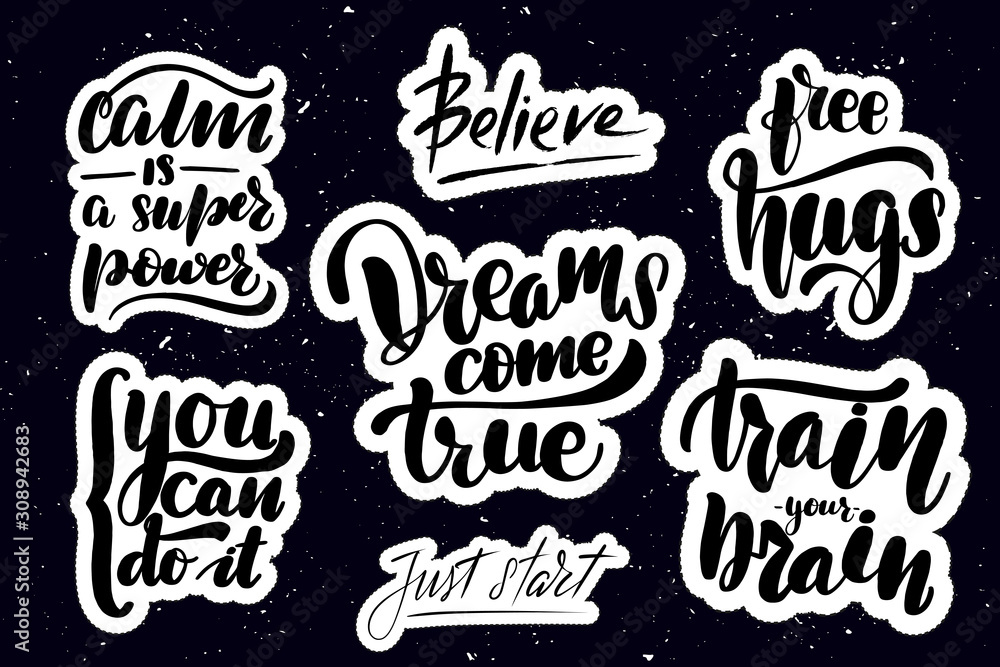 calm
is
a super
power
Believe
free
hugs
Dreams
come
true
you
can
do it
Just start
train
-your-
brain
Adobe Stock | #308942683